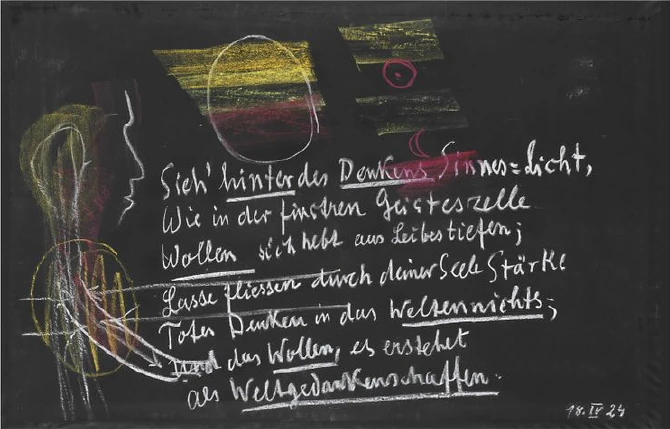 Sieh' hinter des Denkens Sinnes=Licht,
Wie in der finstren Geisteszelle
Wollen sich hebt aus Leibestiefen;
Lasse fliessen durch deiner Seele Stärke
Totes Denken in das Weltennichts;
Und das Wollen, es erstehet
als Weltgedankenschaffen.
18. IV 24